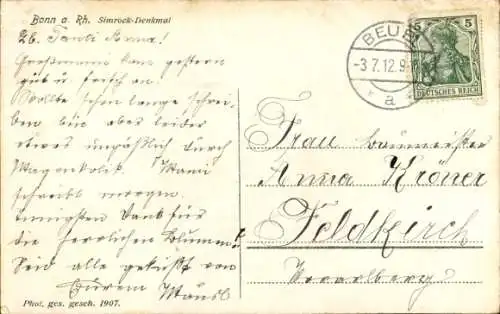 Bonn a. Rh. Simrock-Denkmal
Lb. Tanti Anna!
Großmami kam gestern
gut u. frisch an.
Wollte schon lange schrei-
ben bin aber leider
etwas unpäßlich durch
Magenkolik. Mami
schreibt morgen.
Innigsten Dank für
die herrlichen Blumen!
Seid alle geküßt von
Eurem Mäusl
Phot. ges. gesch. 1907.
BEU
-3.7.12.9
* a *
5
DEUTSCHES REICH
Frau Baumeister
Anna Kröner
Feldkirch
Vorarlberg